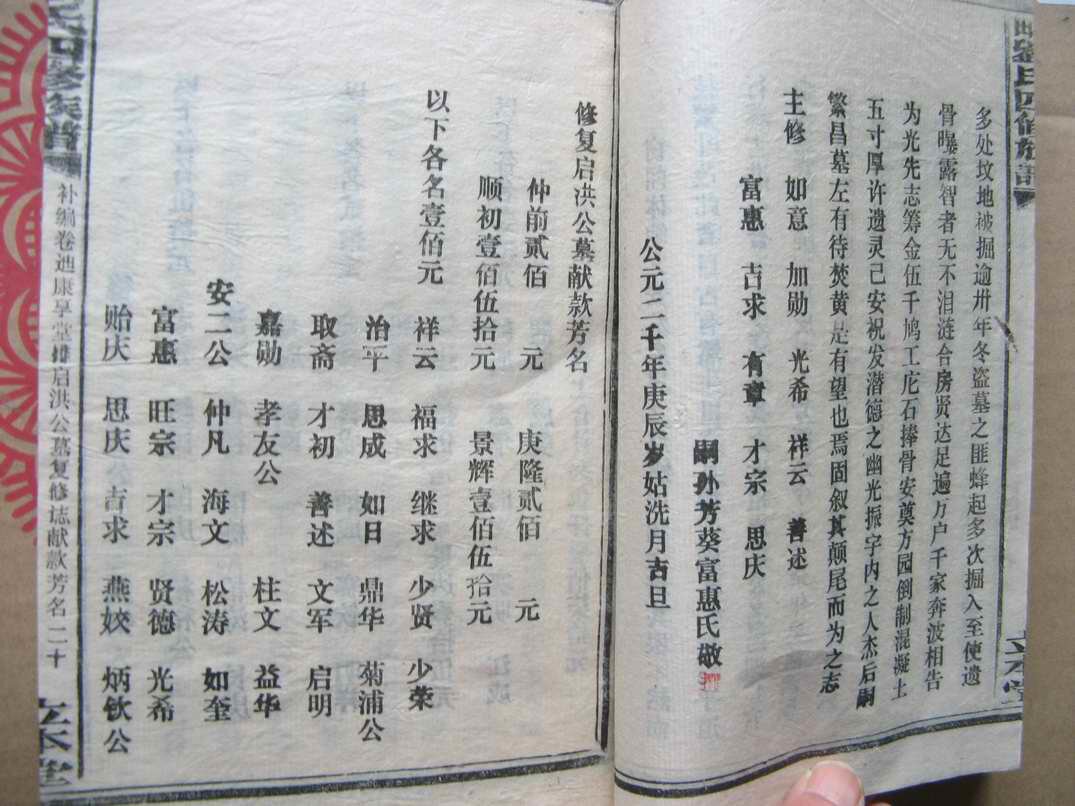 刘氏四修族谱
多处坟地被掘逾卅年冬盗墓之匪蜂起多次掘入至使遗
骨曝露智者无不泪涟合房贤达足遍万户千家奔波相告
为光先志筹金伍千鸠工庀石捧骨安奠方园倒制混凝土
五寸厚许遗灵已安祝发潜德之幽光振宇内之人杰后嗣
繁昌墓左有待焚黄是有望也焉固叙其颠尾而为之志
主修 如意 加勋 光希 祥云 善述
富惠 吉求 有章 才宗 思庆
嗣孙芳葵富惠氏敬
公元二千年庚辰岁姑洗月吉旦
立本堂
修复启洪公墓献款芳名
仲前贰佰 元 庚隆贰佰 元
顺初壹佰伍拾元 景辉壹佰伍拾元
以下各名壹佰元
祥云 福求 继求 少贤 少荣
治平 思成 如日 鼎华 菊浦公
取斋 才初 善述 文军 启明
嘉勋 孝友公 柱文 益华
安二公 仲凡 海文 松涛 如奎
富惠 旺宗 才宗 贤德 光希
贻庆 思庆 吉求 燕姣 炳钦公
氏四修族谱
补编卷迪康享堂排启洪公墓复修志献款芳名二十
立本堂